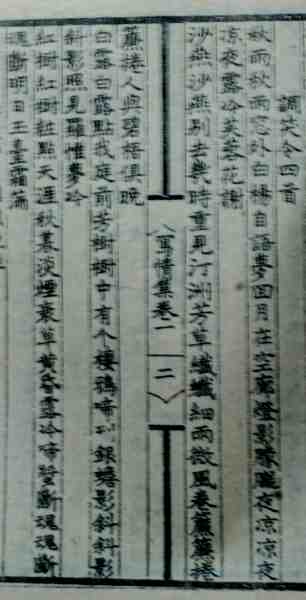 調笑令四首
秋雨秋雨窓外白楊自語夢回月在空廊燈影朦朧夜涼涼夜
涼夜露冷芙蓉花謝
沙燕沙燕別去幾時重見汀洲芳草纖纖細雨微風卷簾簾捲
簾捲人與碧梧俱晚
寫情集卷一 二
白露白露點我庭前芳樹樹中有个棲鴉啼到銀蟾影斜斜影
斜影照見羅帷夢冷
紅樹紅樹粧點天涯秋暮淡煙衰草黃昏露冷啼螿斷魂魂斷
魂斷明日玉臺霜滿